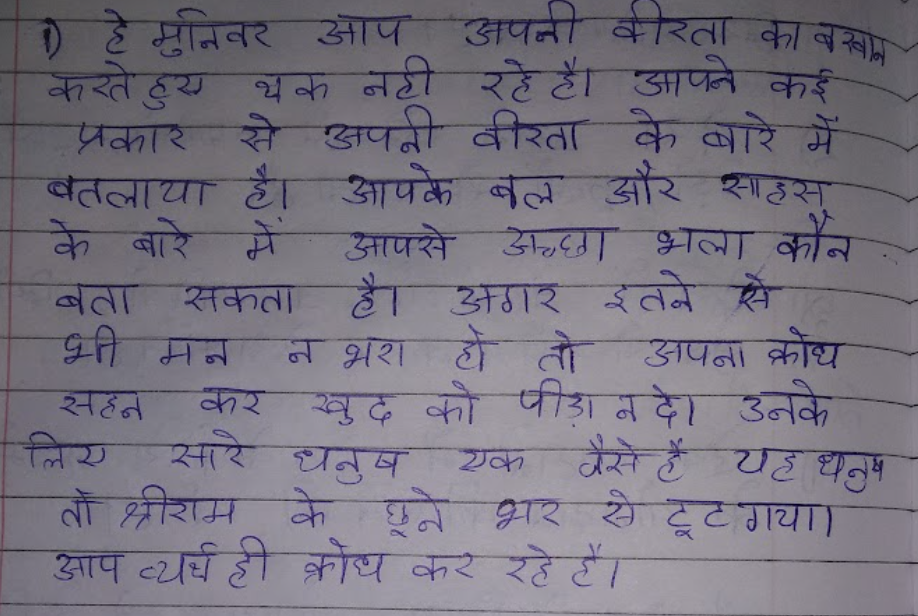 1) हे मुनिवर आप अपनी वीरता का बखान
करते हुए थक नही रहे है। आपने कई
प्रकार से अपनी वीरता के बारे में
बतलाया है। आपके बल और साहस
के बारे में आपसे अच्छा भला कौन
बता सकता है। अगर इतने से
भी मन न भरा हो तो अपना क्रोध
सहन कर खुद को पीड़ा न दे। उनके
लिए सारे धनुष एक जैसे है यह धनुष
तो श्रीराम के छूने भर से टूट गया।
आप व्यर्थ ही क्रोध कर रहे है।